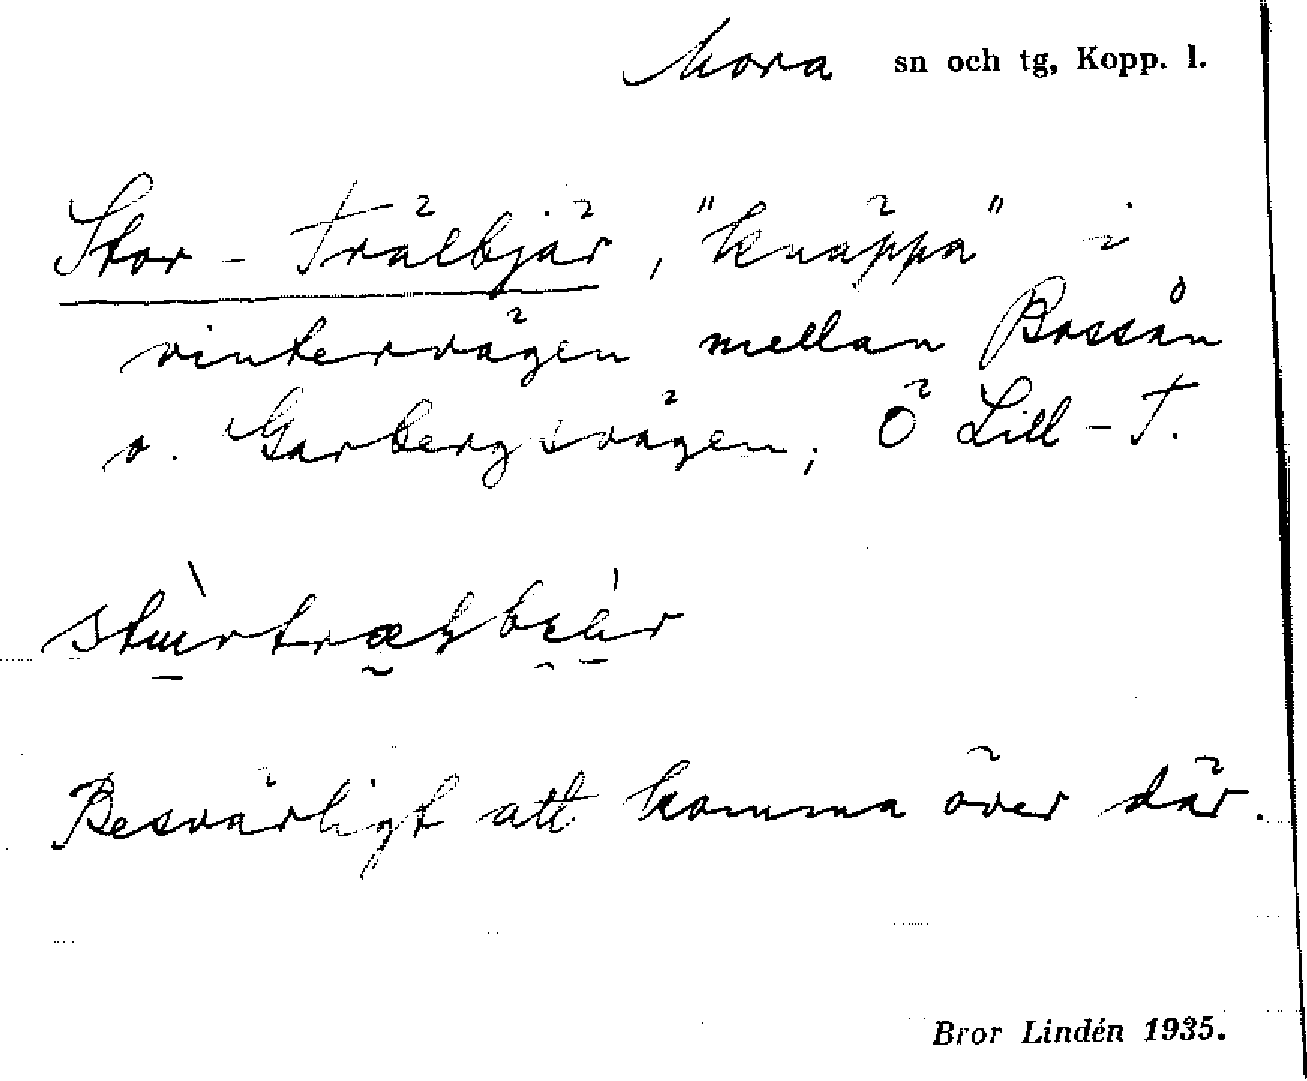 Mora sn och tg, Kopp. l.
Stor-Trälbjär, "knäppa" i
vintervägen mellan Bossån
o. Garbergsvägen, Ö Lill-T.
Besvärligt att komma över där.
Bror Lindén 1935.